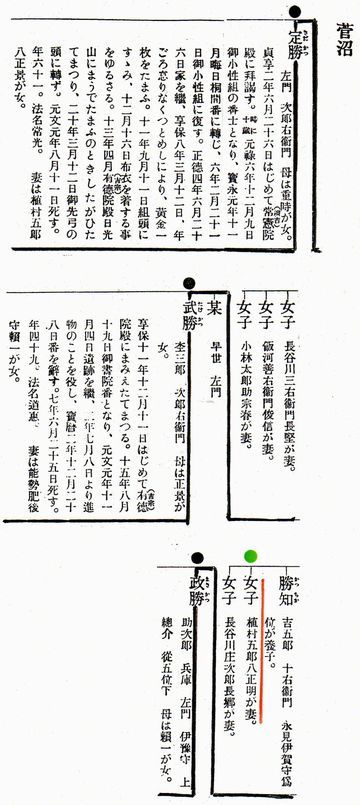 菅沼
定勝
さだ かつ
左門 次郎右衞門 母は重時が女。
貞享二年六月二十六日はじめて常憲院
殿に拜謁す。時に十歲 元祿六年十二月九日
御小性組の番士となり、寳永元年十一
月晦日桐間番に轉じ、六年二月二十一
日御小性組に復す。正德四年六月二十
六日家を繼、享保八年三月十二日、年
ごろ怠りなくつとめしにより、黃金一
枚をたまふ。十一年九月十一日組頭に
すゝみ、十二月十六日布衣を着する事
をゆるさる。十三年四月有德院殿日光
山にまうでたまふのときしたがひた
てまつり、二十年三月十二日御先弓の
頭に轉ず。元文元年八月十一日死す。
年六十一。法名常光。 妻は植村五郎
八正景が女。
女子
長谷川三右衞門長堅が妻。
女子
飯河善右衞門俊信が妻。
女子
小林太郎助宗春が妻。
某
早世 左門
武勝
たけ かつ
李三郎 次郎右衞門 母は正景が
女。
享保十一年十二月十一日はじめて有德
院殿にまみえたてまつる。十五年八月
十九日御書院番となり、元文元年十一
月四日遺跡を繼、二年七月八日より進
物のことを役し、寳曆二年十二月二十
八日番を辭す。七年六月二十五日死す。
年四十九。法名道惠。 妻は能勢肥後
守賴一が女。
勝知
かつ
吉五郎 十右衞門 永見伊賀守爲
位が養子。
女子
植村五郎八正明が妻。
女子
長谷川庄次郎長鄕が妻。
政勝
まさ かつ
助次郎 兵庫 左門 伊豫守 上
總介 從五位下 母は賴一が女。